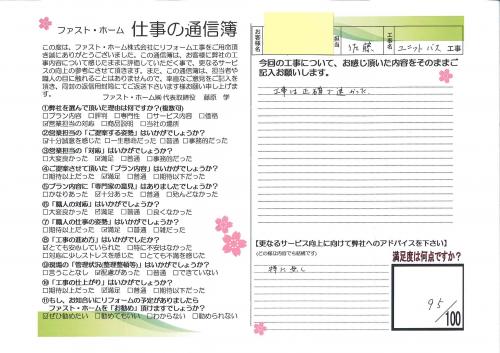 ファスト・ホーム 仕事の通信簿
この度は、ファスト・ホーム株式会社にリフォーム工事をご用命頂き
誠にありがとうございました。この通信簿は、お客様に弊社の工
事内容について感じたままに評価していただく事で、更なるサービ
スの向上の参考にさせて頂きます。また、この通信簿は、担当者や
職人の目に触れることはありませんので、率直なご意見をご記入
頂き、同封の返信用封筒にてご返送下さいます様お願い申し上げま
す。
ファスト・ホーム㈱代表取締役 藤原 学
①弊社を選んで頂いた理由は何ですか?(複数可)
□プラン内容 □評判 □専門性 □サービス内容 □価格
☑営業担当の対応 □商品説明 □当社の場所
②営業担当の「ご提案する姿勢」はいかがでしょうか?
☑十分誠意を感じた □一生懸命だった □普通 □事務的だった
③営業担当の「対応」はいかがでしょうか?
□大変良かった ☑満足 □普通 □事務的だった
④ご提案させて頂いた「プラン内容」はいかがでしょうか?
□期待以上だった ☑満足 □普通 □期待以下だった
⑤プラン内容に「専門家の意見」はありましたでしょうか?
□かなりあった ☑十分あった □普通 □殆んどなかった
⑥「職人の対応」はいかがでしょうか?
□大変良かった ☑満足 □普通 □良くなかった
⑦「職人の仕事の姿勢」はいかがでしょうか?
□期待以上だった ☑満足 □普通 □雑だった
⑧「工事の進め方」はいかがでしたか?
☑とても安心していられた □特に不安はなかった
□対応に少しストレスを感じた □とても不満を感じた
⑨現場の「管理状況(整理整頓等)」はいかがでしょうか?
□言うことなし ☑配慮があった □普通 □できていない
⑩「工事の仕上がり」はいかがでしょうか?
□期待以上だった ☑満足 □普通 □期待以下だった
⑪もし、お知合いにリフォームの予定がありましたら
ファスト・ホームを「お勧め」頂けますでしょうか?
☑ぜひ勧めたい □勧めてもいい □わからない □勧められない
お客様名
担当
佐藤
工事名
ユニットバス 工事
今回の工事について、お感じ頂いた内容をそのままご
記入お願いします。
【更なるサービス向上に向けて弊社へのアドバイスを下さい】
(どの様な内容でも結構です)
特に無し
満足度は何点ですか?
95
/100